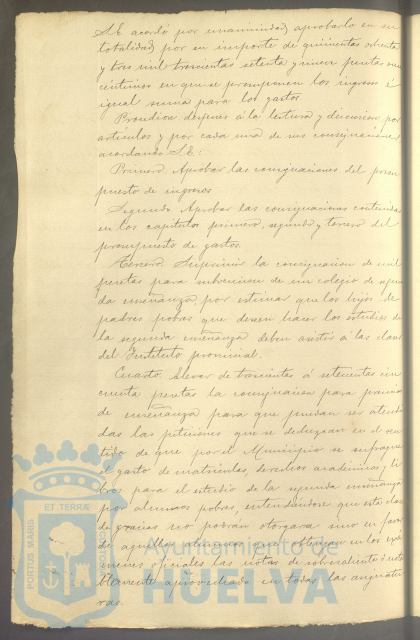 S.E. acordó por unanimidad aprobarlo en su
totalidad por su importe de quinientas ochenta
y tres mil trescientas setenta y nueve pesetas
céntimos en que se presuponen los ingresos é
igual suma para los gastos.
Procedióse despues á la lectura y discusion por
artículos y por cada una de sus consignaciones
acordando S.E.:
Primero. Aprobar las consignaciones del presu
puesto de ingresos
Segundo. Aprobar las consignaciones contenidas
en los capítulos primero, segundo y tercero del
presupuesto de gastos.
Tercero. Suprimir la consignacion de mil
pesetas para subvencion de un colegio de segun
da enseñanza, por estimar que los hijos de
padres pobres que deseen hacer los estudios de
la segunda enseñanza deben asistir á las clases
del Instituto provincial.
Cuarto. Elevar de trescientas á setecientas cin
cuenta pesetas la consignacion para premios
de enseñanza para que puedan ser atendi
das las peticiones que se deduzcan en el sen
tido de que por el Municipio se sufrague
el gasto de matrículas, derechos académicos y li
bros para el estudio de la segunda enseñanza
por alumnos pobres, entendiéndose que esta clase
de gracias no podrán otorgarse sino en favor
de aquellos alumnos que obtengan en los exá
menes oficiales las notas de sobresaliente ó nota
blemente aprovechado en todas las asignatu
ras.
PORTUS MARIS
ET TERRÆ
Ayuntamiento de
HUELVA